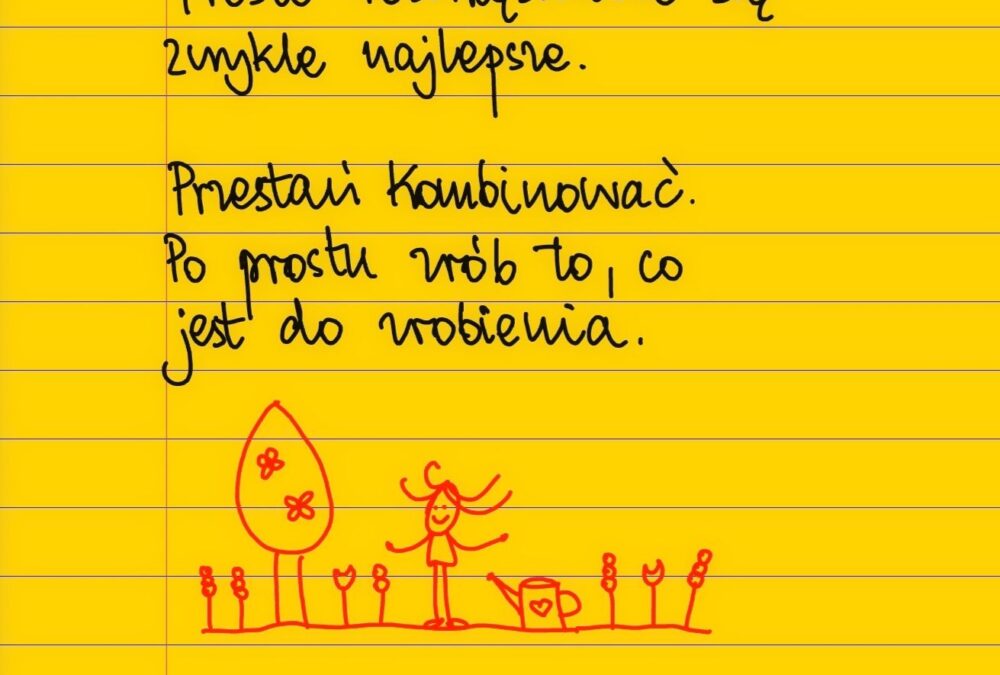 zwykle najlepsze.
Przestań kombinować.
Po prostu zrób to, co
jest do zrobienia.